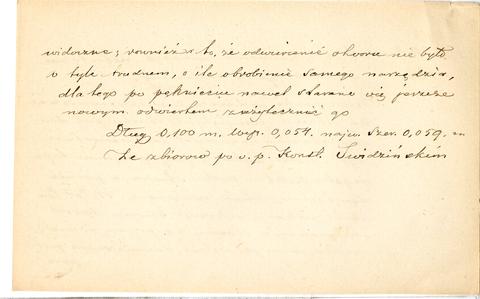 widoczne; również i to, że odwiercenie otworu nie było
o tyle trudnem, o ile obrobienie samego narzędzia,
dla tego po pęknięciu nawet starano się jeszcze
nowym odwiertem zużyteczniść go
Dług 0,100 m. wys. 0,054. najw. szer. 0,059. m
Ze zbiorów po ś. p. Konst. Świdzińskim